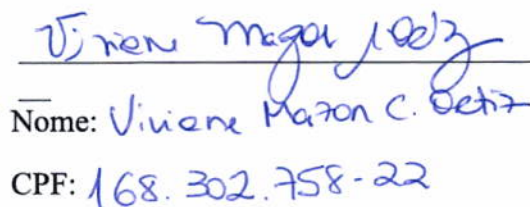 Viviane Mazon
Nome: Viviane Mazon C. Ortiz
CPF: 168.302.758-22